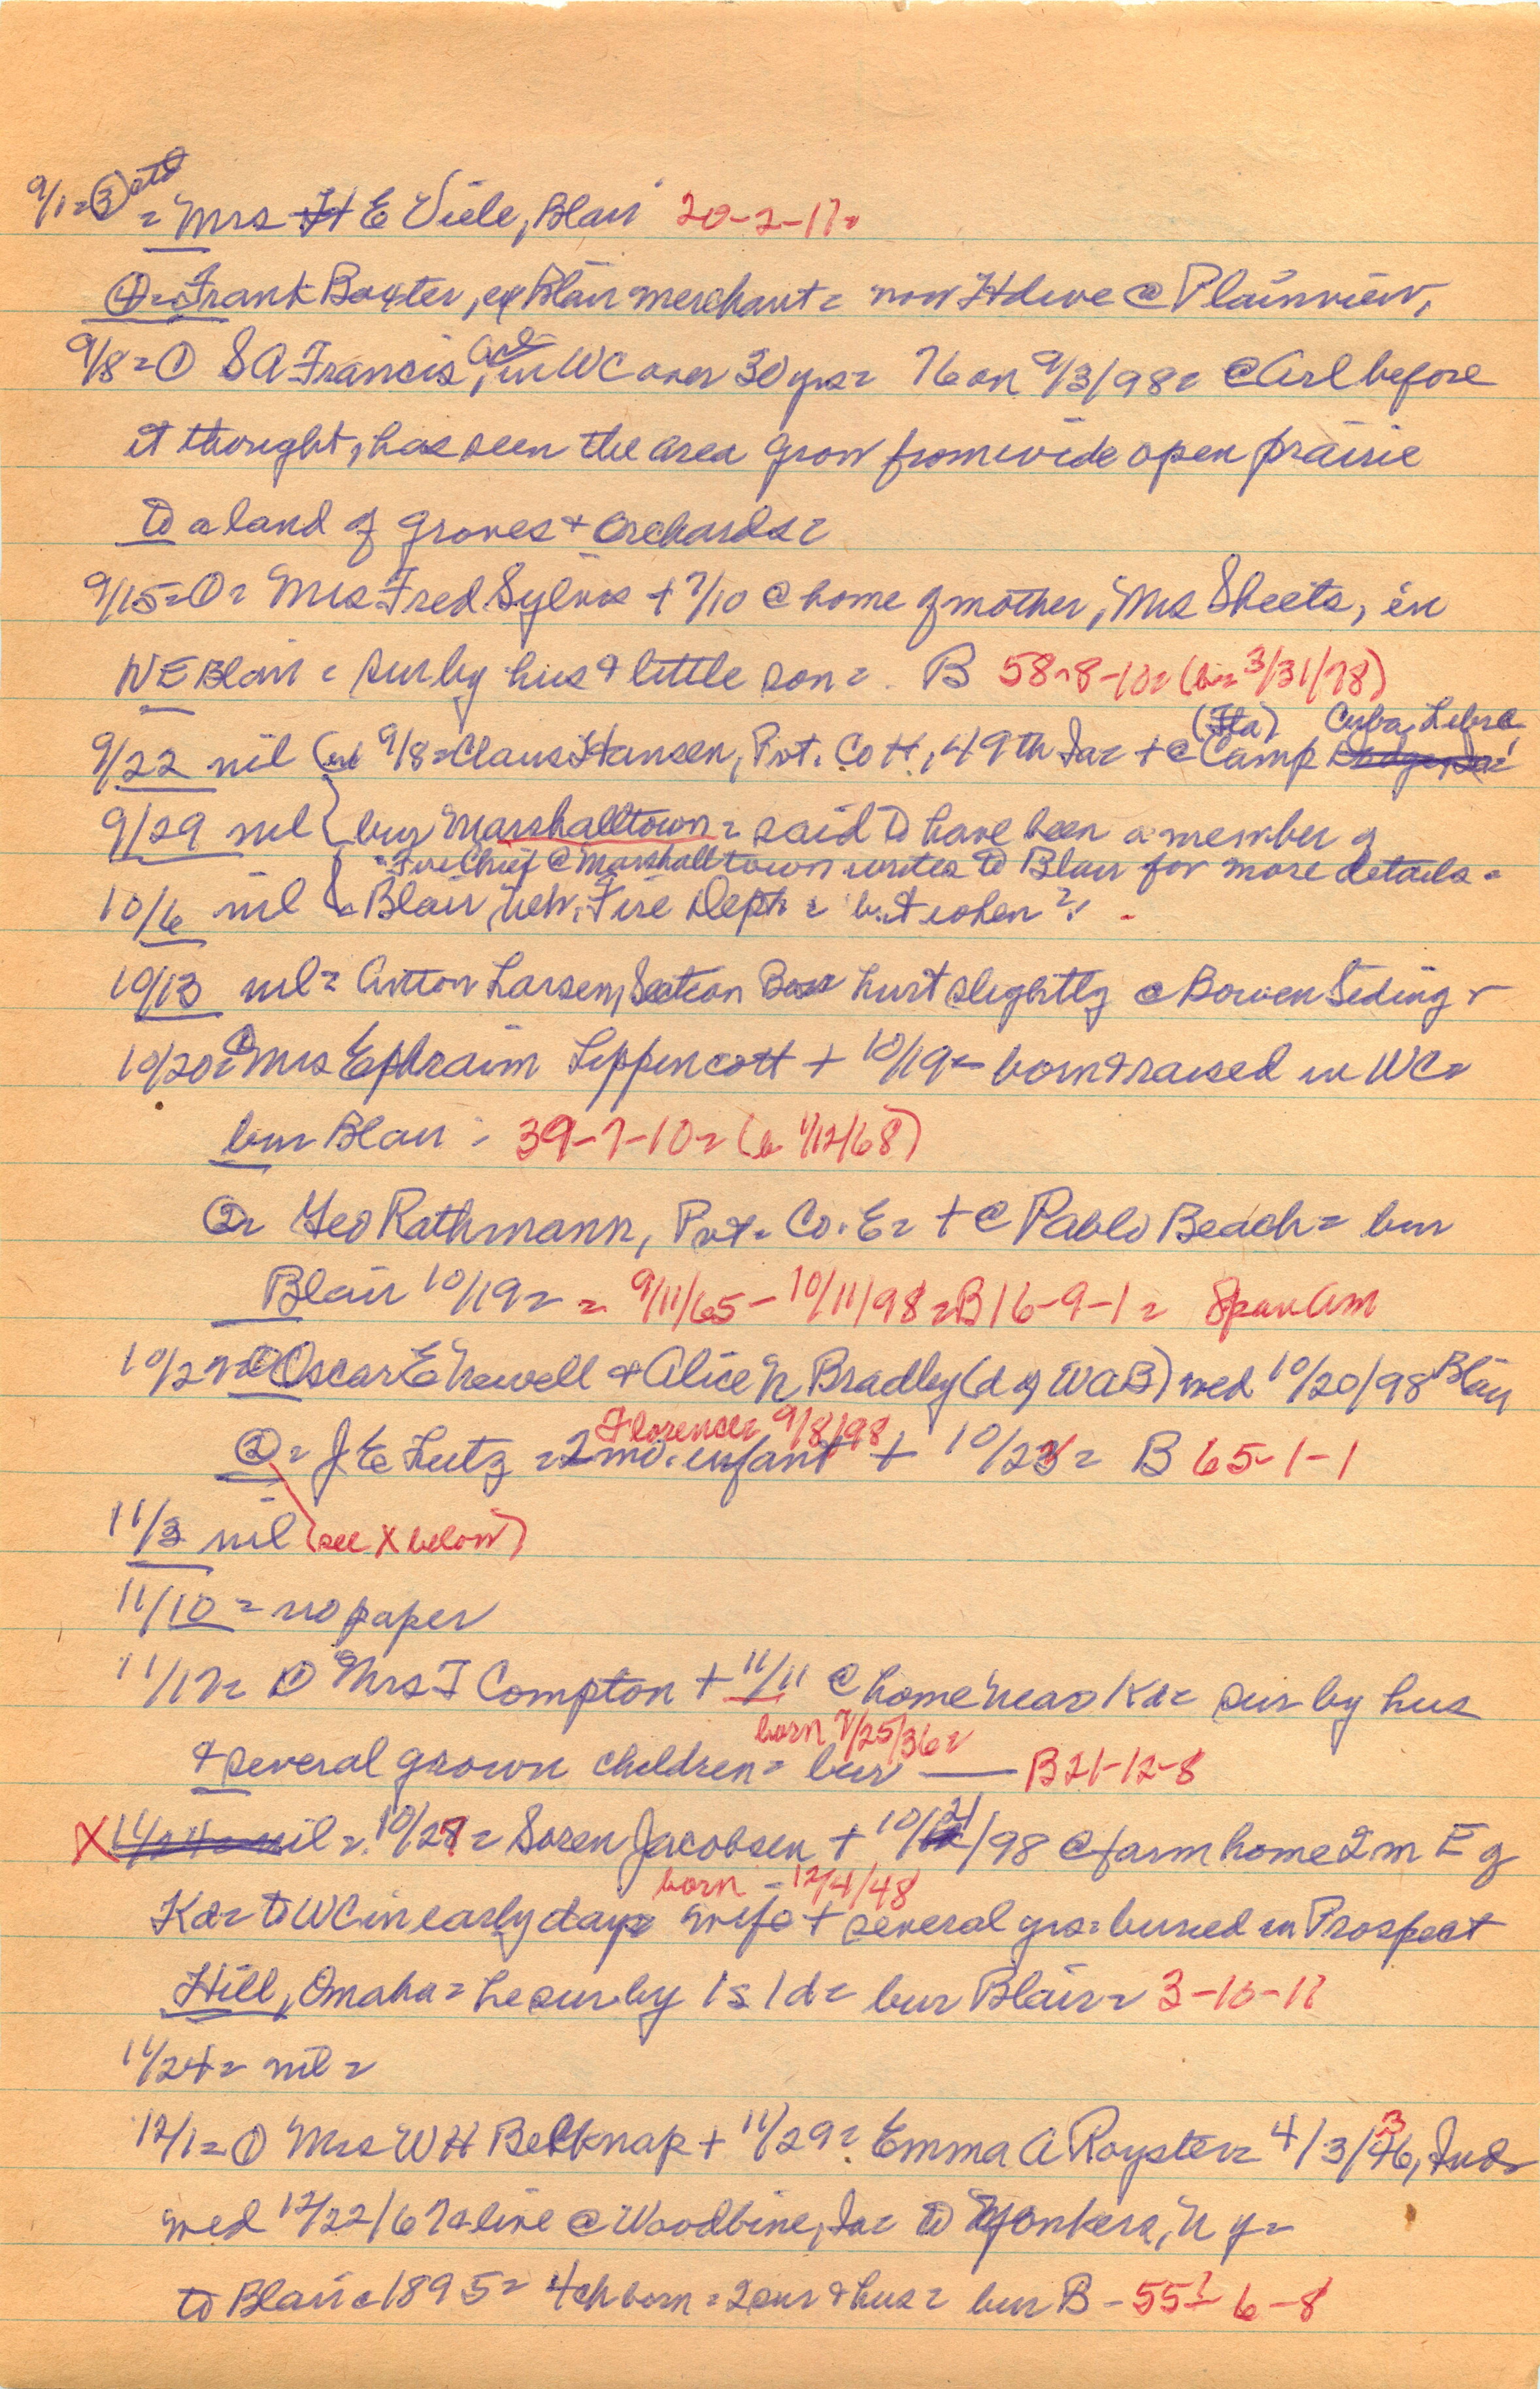 9/1= ③ ctd = Mrs H E Viele, Blair 20-2-17=
④= Frank Baxter, ex Blair merchant= now Hdwe @ Plainview,
9/8= ① S A Francis, in WC over 30 yrs= 76 on 9/3/98= @ Arl before
it thought, has seen the area grow from wide open prairie
to a land of groves + orchards=
9/15= ①= Mrs Fred Sylvis + 9/10 @ home of mother, Mrs Sheets, in
NE Blair = sur by hus & little son= B 58-8-10= (b= 3/31/78)
(Fla) Cuba Libre
9/22 nil (9/8= Claus Hansen, Pvt. Co H, 49th Ia= + @ Camp
9/29 nil { bur Marshalltown = said to have been a member of
= Fire Chief @ Marshalltown writes to Blair for more details =
10/6 nil { Blair Neb. Fire Dept = but when?
10/13 nil= Anton Larsen, Section Boss hurt slightly @ Bowen Siding
10/20= ① Mrs Ephraim Lippencott + 10/19= born & raised in WC=
bur Blair = 39-7-10= (b 1/12/68)
②= Geo Rathmann, Pvt. Co. E= + @ Pablo Beach= bur
Blair 10/19= = 9/11/65 - 10/11/98= B 16-9-1= Span Am
10/27= ① Oscar E Newell & Alice N Bradley (d of WAB) wed 10/20/98 Blair
Florence= 9/8/98
②= J E Lutz = 2 mo. infant + 10/23= B 65-1-1
11/3 nil (see X below)
11/10 = no paper
11/17= ① Mrs T Compton + 11/11 @ home near Kd= sur by hus
born 7/25/36=
& several grown children= bur —— B 21-12-8
X 11/24= nil = 10/27= Soren Jacobsen + 10/21/98 @ farm home 2 m E of
born - 12/4/48
Kd= to WC in early days wife + several yrs= buried in Prospect
Hill, Omaha= he sur by 1s 1d= bur Blair= 3-16-11
11/24= nil=
12/1= ① Mrs W H Belknap + 11/29= Emma A Royster= 4/3/36, Ind=
wed 12/22/67 & live @ Woodbine, Ia= to Yonkers, N Y=
to Blair @ 1895= 4 ch born = 2 sur & hus= bur B - 55?- 6-8